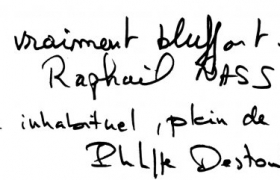 vraiment bluffant.
Raphaël NASS
inhabituel, plein de
Philippe Deston